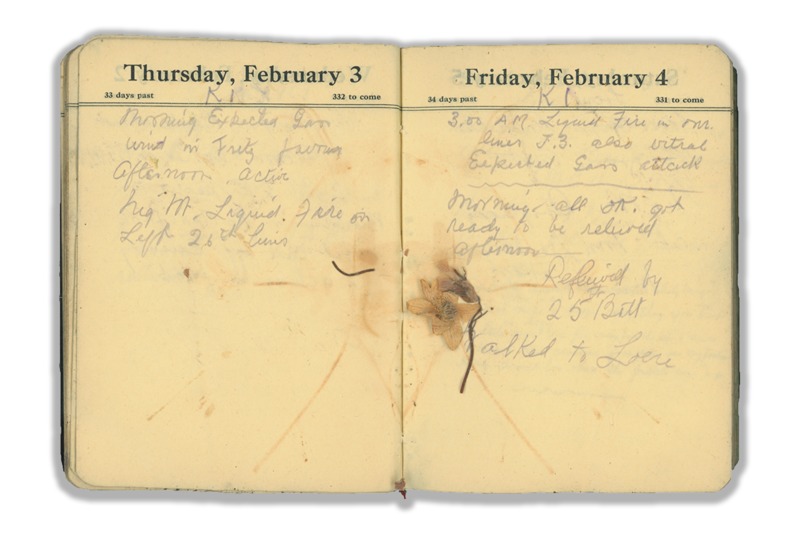 Thursday, February 3
33 days past 332 to come
K 1
Morning Expected Gas
wind in Fritz favour
Afternoon Active
Night Liquid Fire on
Left 25th Lines
Friday, February 4
34 days past 331 to come
K 1
3.00 A.M. Liquid Fire in our
lines F.3. also
Expected Gas attack
Morning all OK. got
ready to be relieved
afternoon
Relieved by
25th Batt
Walked to Locre